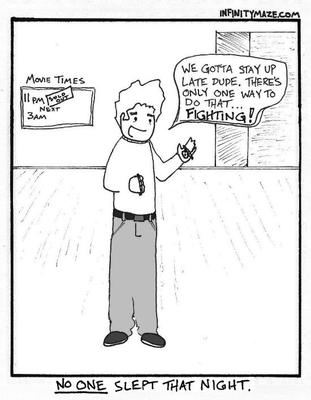 INFINITYMAZE.COM
MOVIE TIMES
11 PM SOLD OUT
NEXT
3AM
WE GOTTA STAY UP
LATE DUDE. THERE'S
ONLY ONE WAY TO
DO THAT...
FIGHTING!
NO ONE SLEPT THAT NIGHT.